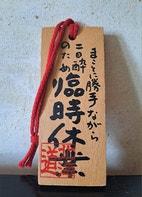 まことに勝手ながら
二日酔
のため
臨時休業